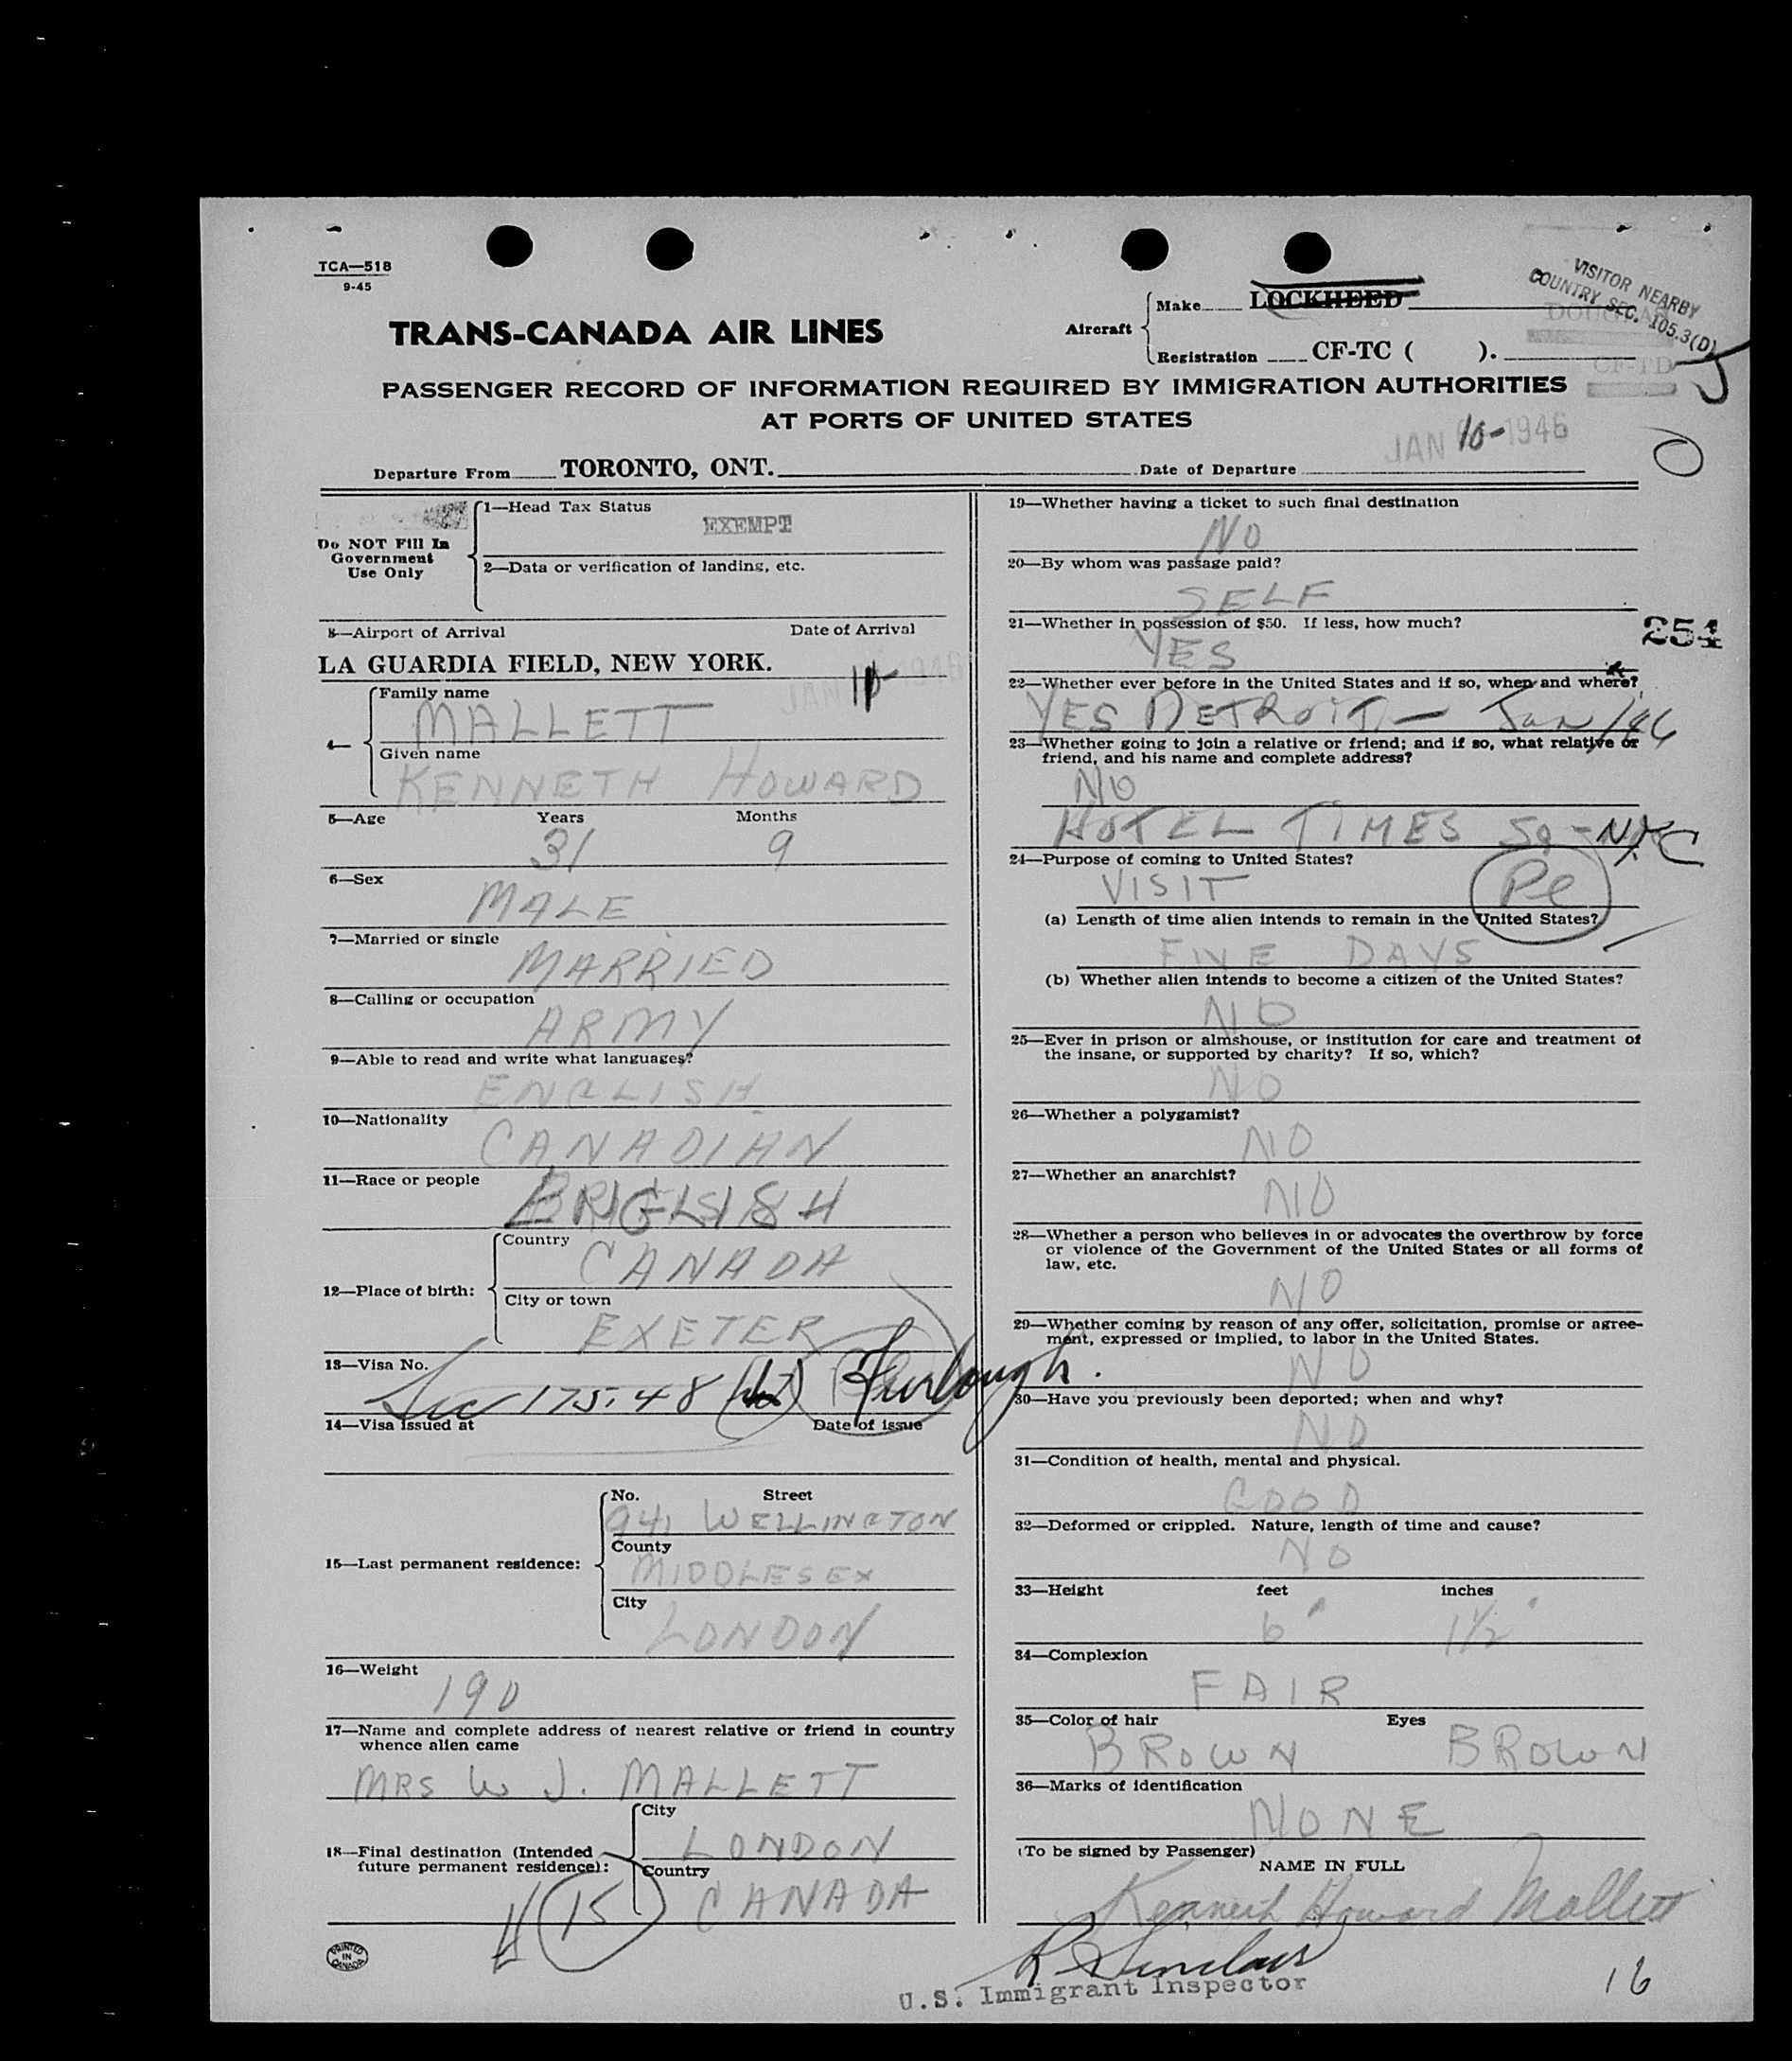 TCA—518
9-45
VISITOR NEARBY
COUNTRY SEC. 105.3(D)
Aircraft
Make LOCKHEED
DOUGLAS
TRANS-CANADA AIR LINES
Registration CF-TC ( ).
CF-TD
PASSENGER RECORD OF INFORMATION REQUIRED BY IMMIGRATION AUTHORITIES
AT PORTS OF UNITED STATES
Departure From TORONTO, ONT. Date of Departure JAN 10-1946
Do NOT Fill In
Government
Use Only
1—Head Tax Status
EXEMPT
2—Data or verification of landing, etc.
3—Airport of Arrival Date of Arrival
LA GUARDIA FIELD, NEW YORK. JAN 10 1946
4—
Family name
MALLETT
Given name
KENNETH HOWARD
5—Age Years Months
31 9
6—Sex
MALE
7—Married or single
MARRIED
8—Calling or occupation
ARMY
9—Able to read and write what languages?
ENGLISH
10—Nationality
CANADIAN
11—Race or people
ENGLISH
12—Place of birth:
Country
CANADA
City or town
EXETER
13—Visa No.
Sec 175.48 Furlough.
14—Visa issued at Date of issue
15—Last permanent residence:
No. Street
941 WELLINGTON
County
MIDDLESEX
City
LONDON
16—Weight
190
17—Name and complete address of nearest relative or friend in country
whence alien came
MRS W J. MALLETT
18—Final destination (Intended
future permanent residence):
City
LONDON
Country
CANADA
15
PRINTED
IN
CANADA
19—Whether having a ticket to such final destination
NO
20—By whom was passage paid?
SELF
21—Whether in possession of $50. If less, how much?
YES
254
22—Whether ever before in the United States and if so, when and where?
YES DETROIT — Jan/46
23—Whether going to join a relative or friend; and if so, what relative or
friend, and his name and complete address?
NO
HOTEL TIMES SQ - NYC
24—Purpose of coming to United States?
VISIT
(a) Length of time alien intends to remain in the United States?
FIVE DAYS
(b) Whether alien intends to become a citizen of the United States?
NO
25—Ever in prison or almshouse, or institution for care and treatment of
the insane, or supported by charity? If so, which?
NO
26—Whether a polygamist?
NO
27—Whether an anarchist?
NO
28—Whether a person who believes in or advocates the overthrow by force
or violence of the Government of the United States or all forms of
law, etc.
NO
29—Whether coming by reason of any offer, solicitation, promise or agree-
ment, expressed or implied, to labor in the United States.
NO
30—Have you previously been deported; when and why?
NO
31—Condition of health, mental and physical.
GOOD
32—Deformed or crippled. Nature, length of time and cause?
NO
33—Height feet inches
6' 1½"
34—Complexion
FAIR
35—Color of hair Eyes
BROWN BROWN
36—Marks of identification
NONE
(To be signed by Passenger)
NAME IN FULL
Kenneth Howard Mallett
R Sinclair
U.S. Immigrant Inspector
16